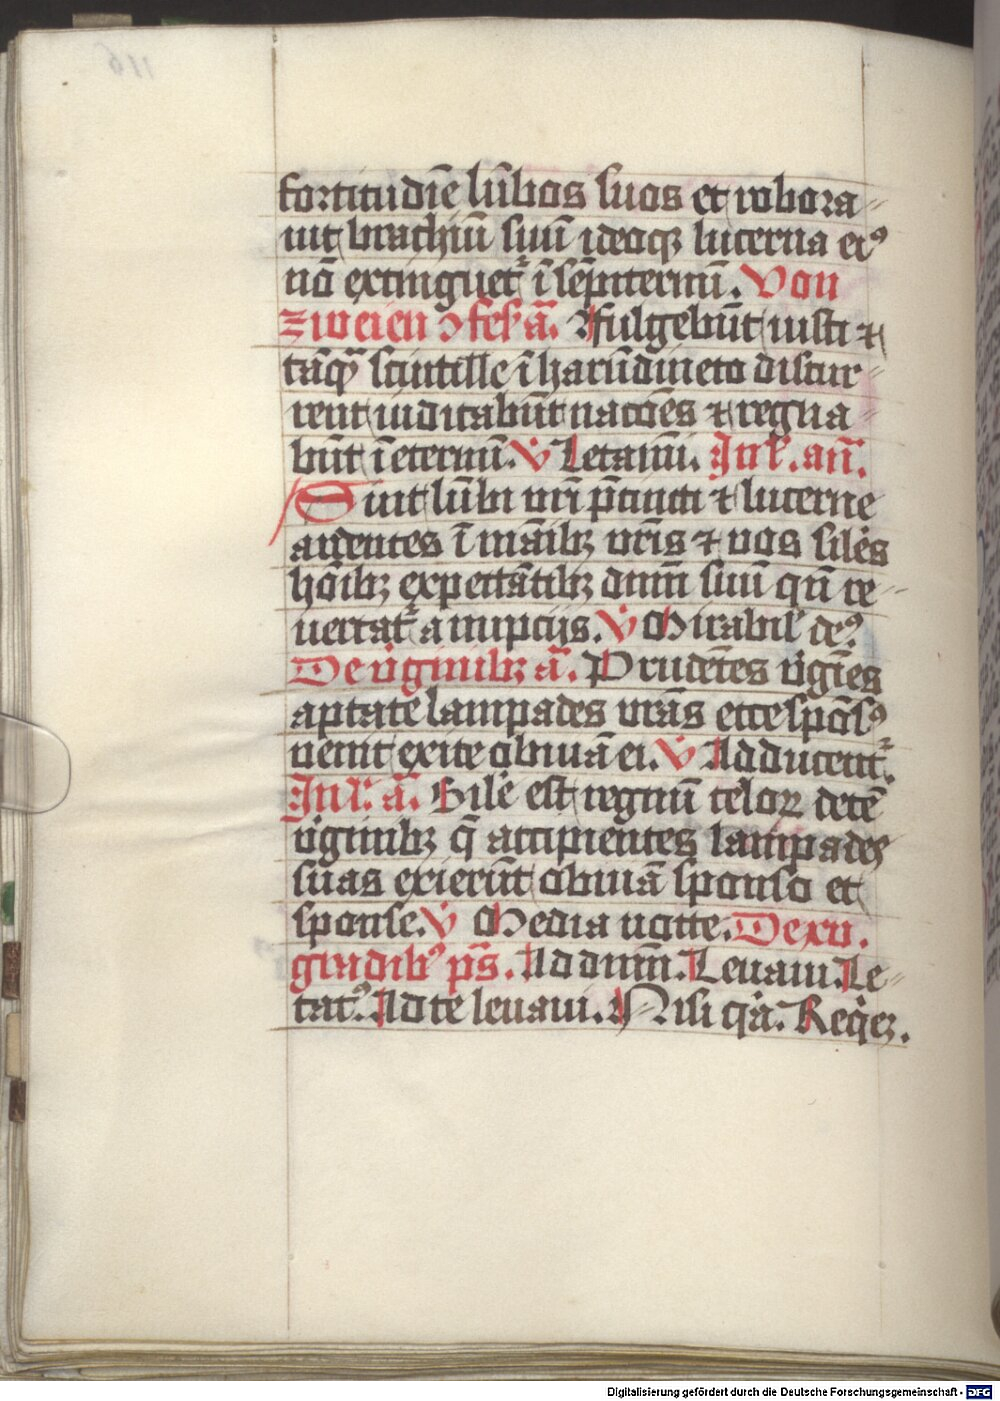 fortitudīe lūbos suos et robora
uit brachiū suū ideoqꝫ lucerna eiꝰ
nō extinguet᷑ ī sēpiternū. Von
zweien ꝯfesß ā. Fulgebūt iusti ⁊
tāqꝫ scintille ī harūdineto discur
rent iudicabūt nacōes ⁊ regna
būt ī eternū. V̇ Letamī. In l᷑. añ.
Sint lūbi vr̄i p̄cincti ⁊ lucerne
ardentes ī māibꝫ vr̄is ⁊ vos siles
hōibꝫ expectātibꝫ dnm̄ suū qn̄ re
uertat᷑ a nupcijs. V̇ Mirabil᷑ deꝰ
De v̇ginibꝫ ā. Prudētes v̇gīes
aptate lampades vrās ecce spōsꝰ
uenit exite obuiā ei. V̇ Adducent᷑.
In l᷑. ā. Sile est regnū celoꝝ decē
v̇ginibꝫ q̄ accipientes lampades
suas exierūt obuiā sponso et
sponse. V̇ Media nocte. De xv.
gradibꝰ ps̄. Ad dnm̄. Leuaui. Le
tatꝰ. Ad te leuaui. Nisi qa. Reqeꝫ.
116
Digitalisierung gefördert durch die Deutsche Forschungsgemeinschaft - DFG